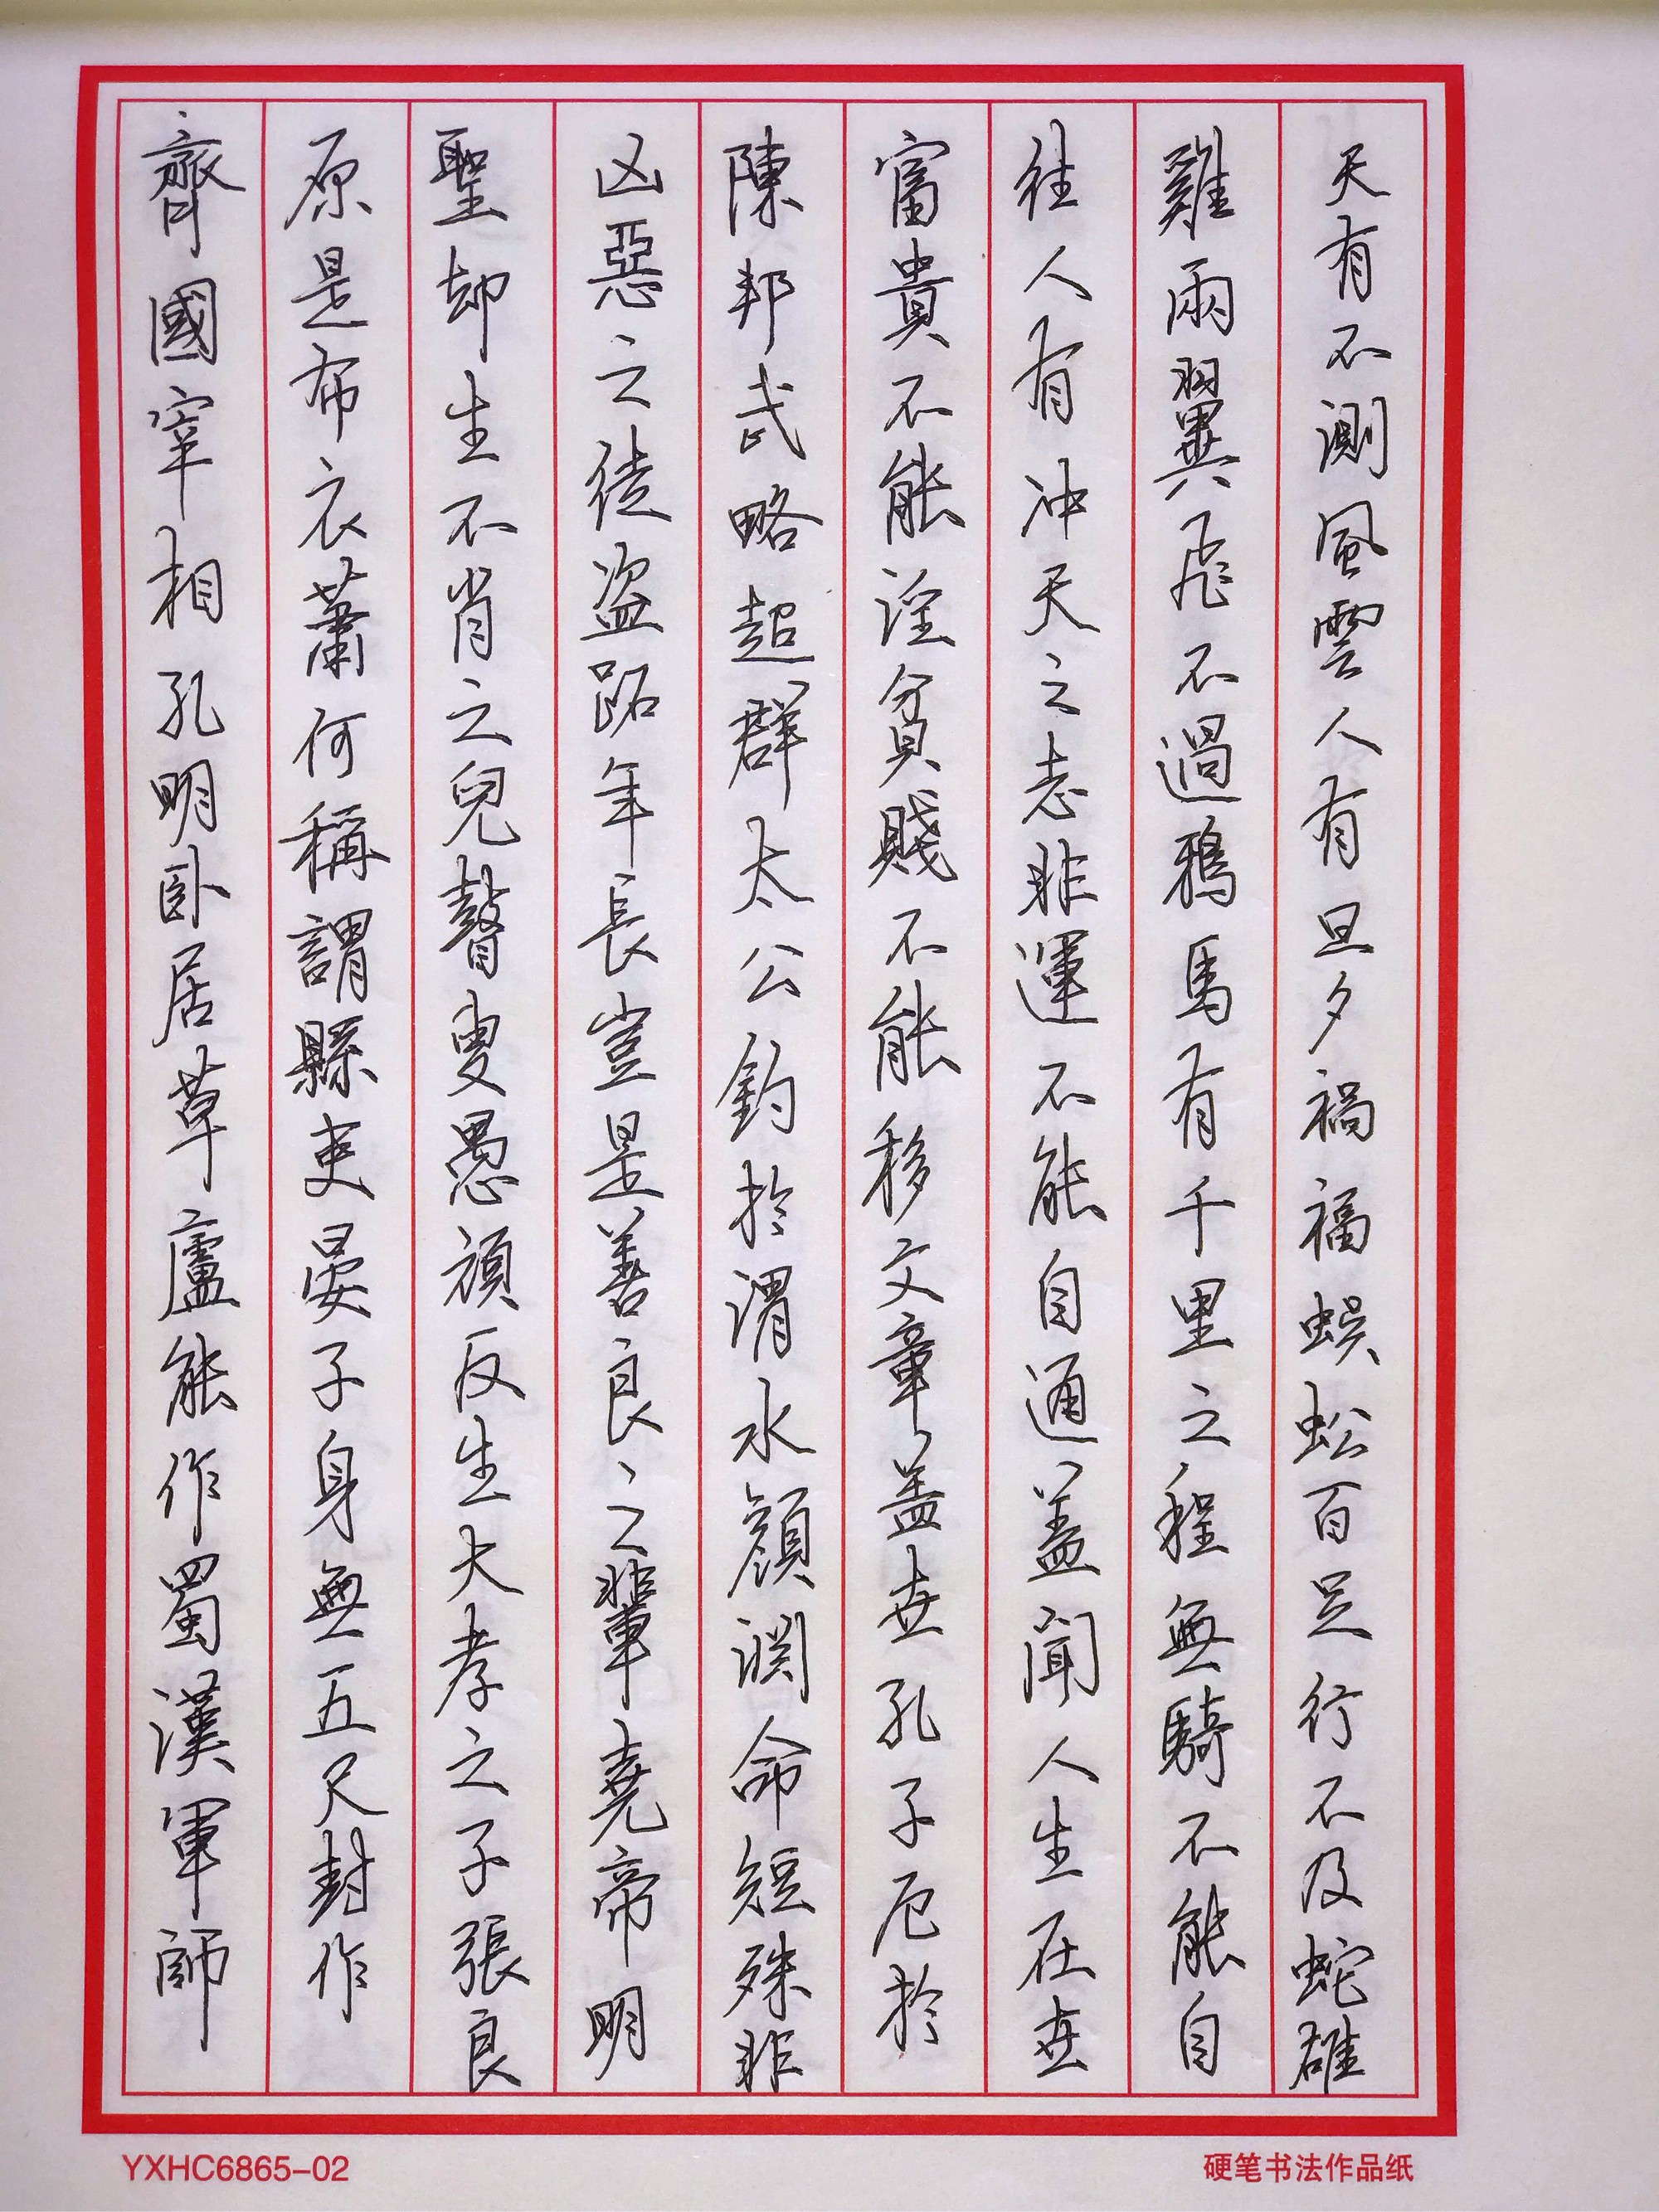 天有不測風雲人有旦夕禍福蜈蚣百足行不及蛇雄
雞兩翼飛不過鴉馬有千里之程無騎不能自
往人有冲天之志非運不能自通蓋聞人生在世
富貴不能淫貧賤不能移文章蓋世孔子厄於
陳邦武略超群太公釣於渭水顏淵命短殊非
凶惡之徒盗跖年長豈是善良之輩堯帝明
聖却生不肖之兒瞽叟愚頑反生大孝之子張良
原是布衣蕭何稱謂縣吏晏子身無五尺封作
齊國宰相孔明卧居草廬能作蜀漢軍師
YXHC6865-02
硬笔书法作品纸